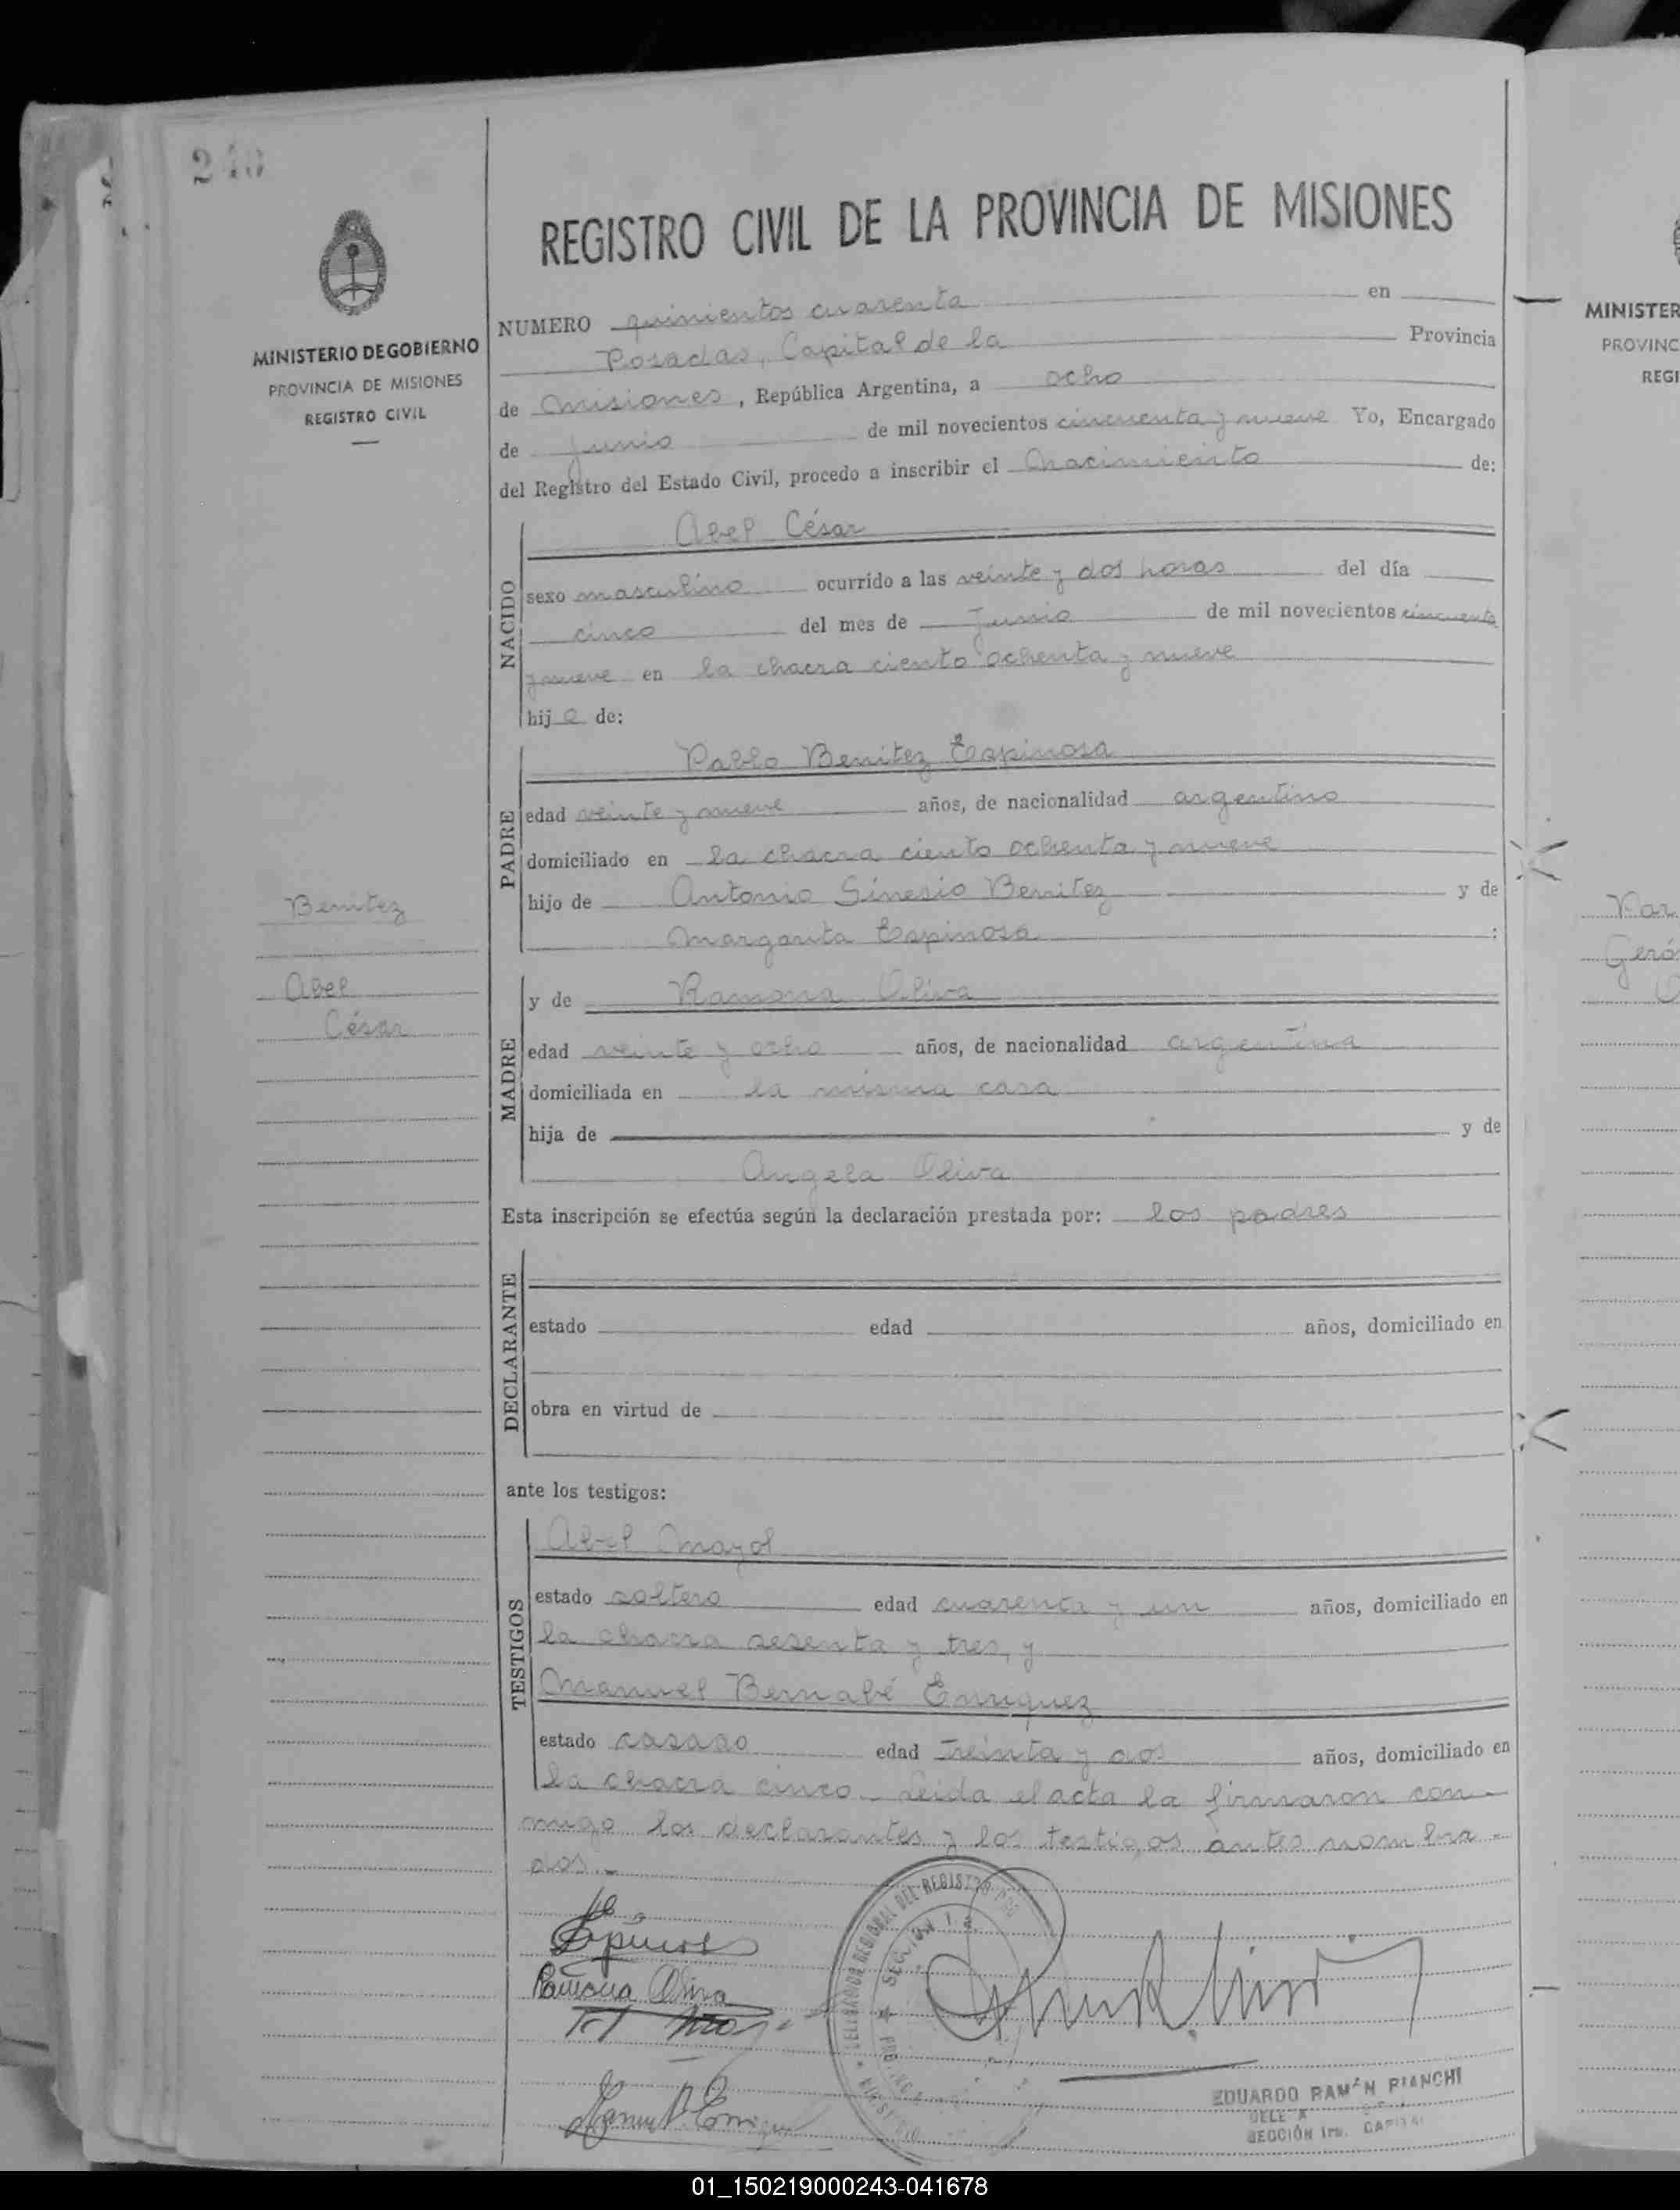 REGISTRO CIVIL DE LA PROVINCIA DE MISIONES
MINISTERIO DE GOBIERNO
PROVINCIA DE MISIONES
REGISTRO CIVIL
Benitez
Abel
César
NUMERO quinientos cuarenta en
Posadas, Capital de la Provincia
de Misiones, República Argentina, a ocho
de junio de mil novecientos cincuenta y nueve Yo, Encargado
del Registro del Estado Civil, procedo a inscribir el Nacimiento de:
NACIDO
Abel César
sexo masculino ocurrido a las veinte y dos horas del día
cinco del mes de Junio de mil novecientos cincuenta
y nueve en la chacra ciento ochenta y nueve
hijo de:
PADRE
Pablo Benitez Espinosa
edad veinte y nueve años, de nacionalidad argentino
domiciliado en la chacra ciento ochenta y nueve
hijo de Antonio Sinesio Benitez y de
Margarita Espinosa :
MADRE
y de Ramona Oliva
edad veinte y ocho años, de nacionalidad argentina
domiciliada en la misma casa
hija de y de
Angela Oliva
Esta inscripción se efectúa según la declaración prestada por: los padres
DECLARANTE
estado edad años, domiciliado en
obra en virtud de
ante los testigos:
TESTIGOS
Abel Mayol
estado soltero edad cuarenta y un años, domiciliado en
la chacra sesenta y tres, y
Manuel Bernabé Enriquez
estado casado edad treinta y dos años, domiciliado en
la chacra cinco.- Leida el acta la firmaron con-
migo los declarantes y los testigos antes nombra-
dos.-
Ramona Oliva
EDUARDO RAMÓN BIANCHI
SECCIÓN 1ra. CAPITAL
MINISTER
PROVINC
REGI
Geró
01_150219000243-041678